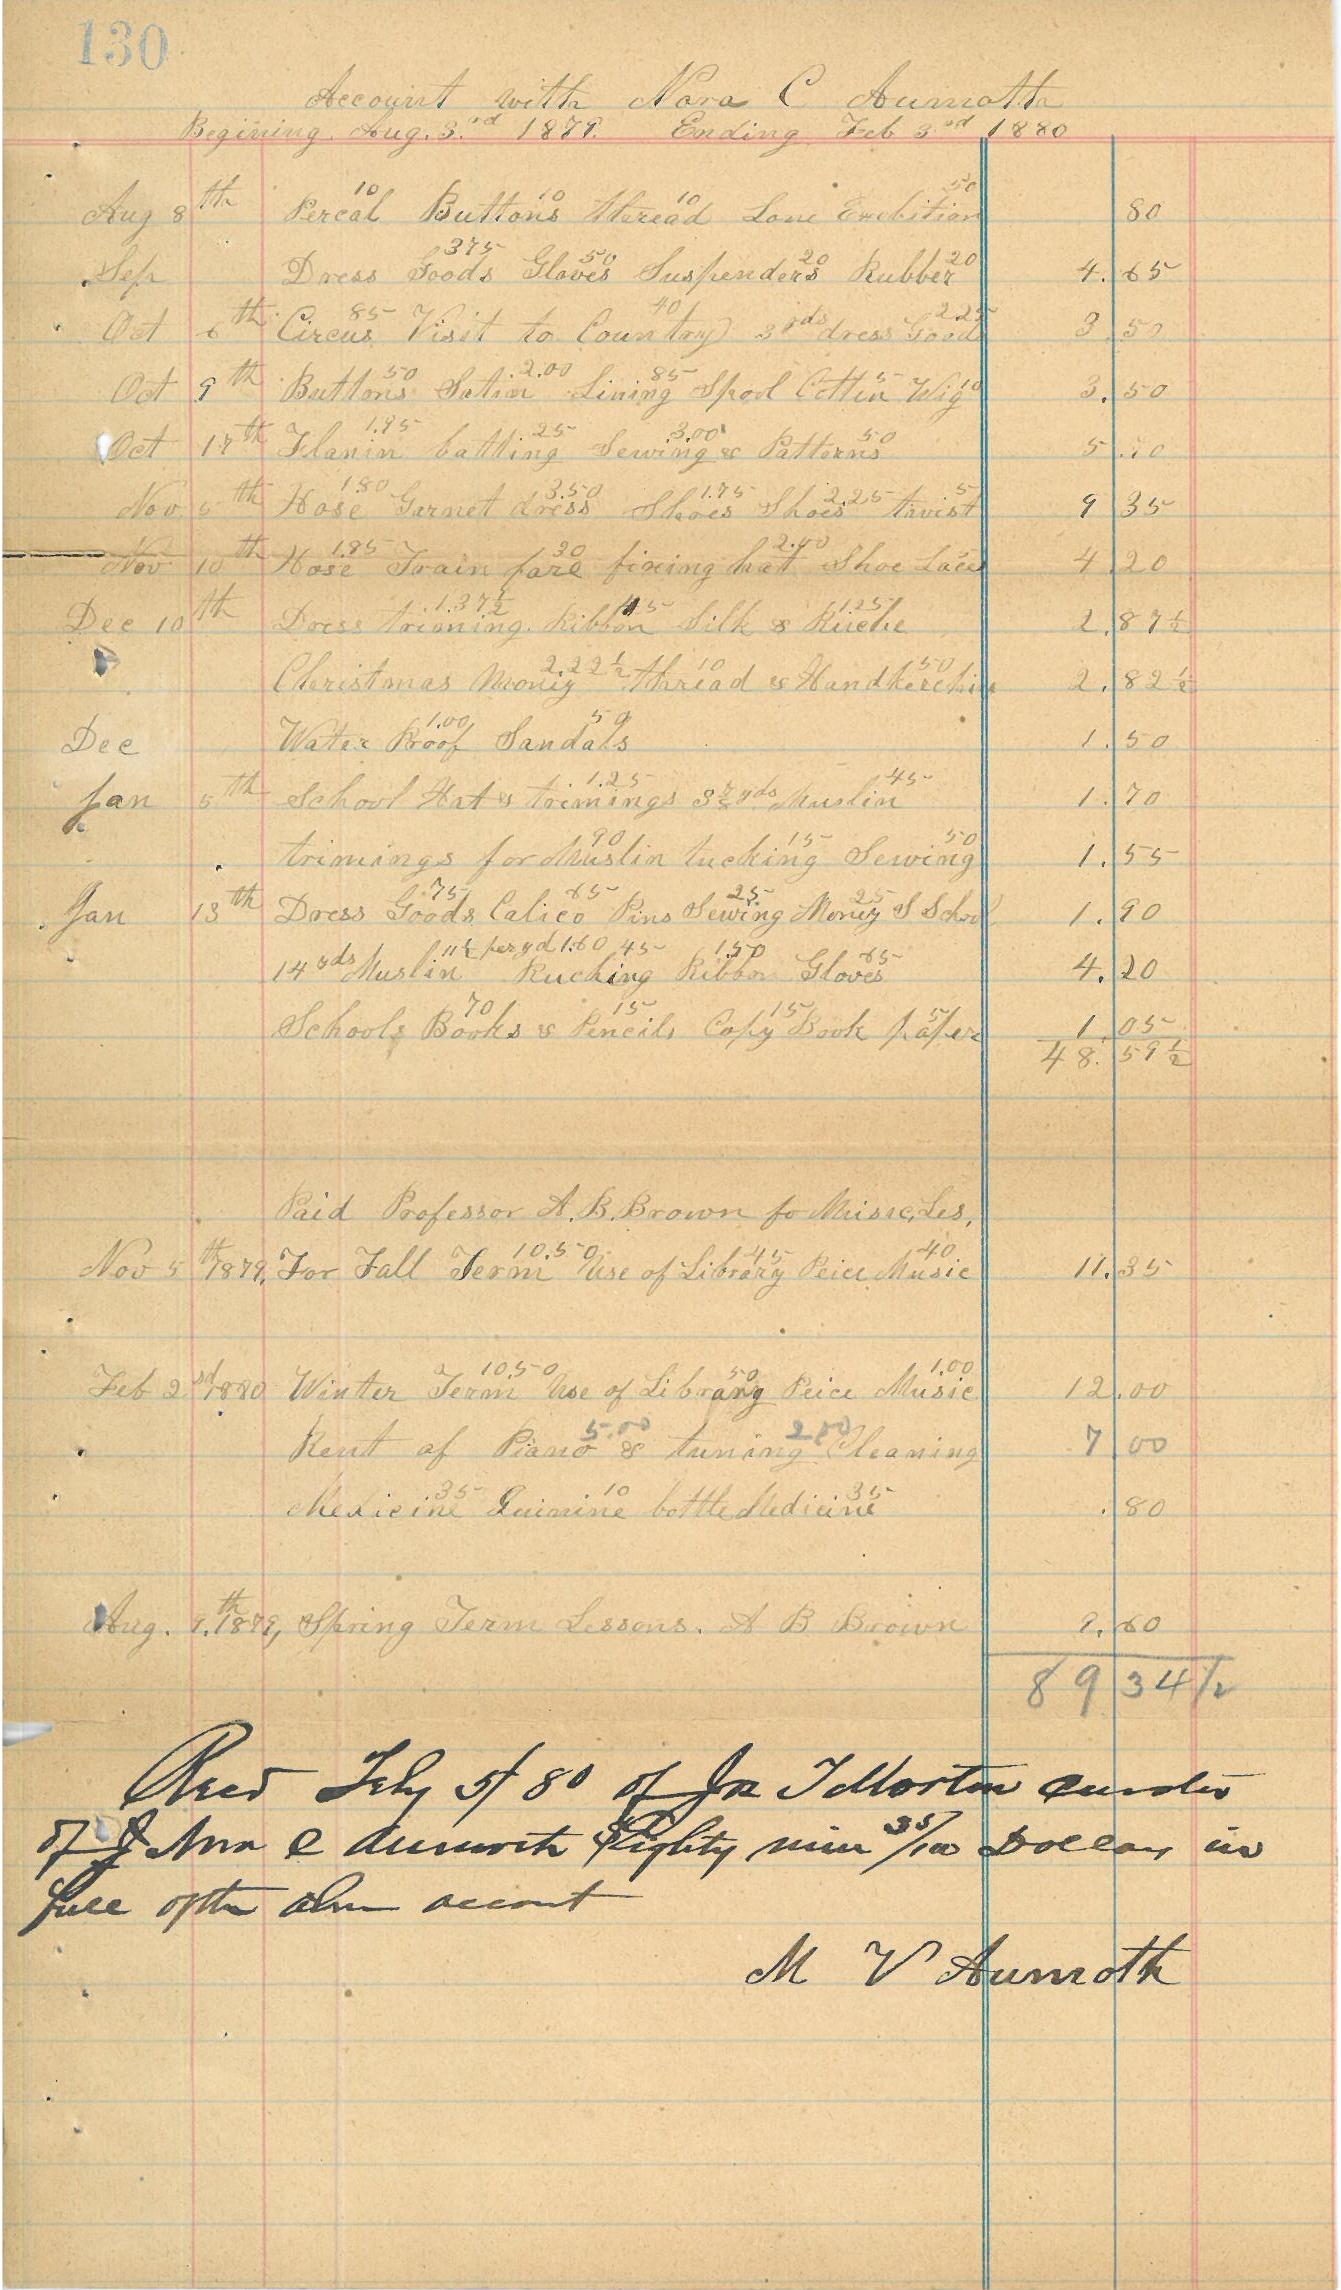 130
Account with Nora C Aumoth
Begining Aug. 3.rd 1879. Ending Feb 3rd 1880
Aug 8th Percal 10 Buttons 10 thread 10 Lone Exebition 50 80
Sep Dress Goods 375 Gloves 50 Suspenders 20 Rubber 20 4.65
Oct 6th Circus 85 Visit to Country 40 3 yds dress Goods 2.25 3 50
Oct 9th Buttons 50 Satin 2.00 Lining 85 Spool Cotten 5 Wig 10 3.50
Oct 17th Flanin 1.95 batting 25 Sewing 3.00 & Patterns 50 5.70
Nov 5th Hose 1.80 Garnet dress 3.50 Shoes 1.75 Shoes 2.25 twist 5 9 35
Nov 10th Hose 1.85 Train fare 30 fixing hat 2.00 Shoe Laces 5 4 20
Dec 10th Dress triming 1.37½ Ribbon Silk & Ruche 1.25 2.87½
Christmas Money 2.22½ thread 10 & Handkerchive 50 2.82½
Dec Water Proof 1.00 Sandals 50 1.50
Jan 5th School Hat & trimings 1.25 3½ yds Muslin 45 1.70
trimings for Muslin 90 tucking 15 Sewing 50 1.55
Jan 13th Dress Goods 75 Calico 65 Pins Sewing 25 Money S School 25 1.90
14 yds Muslin 11½ per yd 1.60 Ruching 45 Ribbon 1.50 Gloves 65 4.20
Schools Books 70 & Pencils 15 Copy Book 15 paper 5 1 05
48.59½
Paid Professor A. B. Brown fo Music, Les,
Nov 5th 1879, For Fall Term 10.50 Use of Library 45 Peice Music 40 11.35
Feb 2nd 1880 Winter Term 10.50 Use of Library 50 Peice Music 1.00 12.00
Rent of Piano 5.00 & tuning 2.00 Cleaning 7 00
Medicine 35 Quinine 10 bottle Medicine 35 .80
Aug. 9.th 1879, Spring Term Lessons. A B Brown 9.60
89 34 1/2
Recd Feby 5/80 of Jos T Morton
of Nora C Aumoth Eighty nine 35/100 Dollars in
full of the above account
M V Aumoth